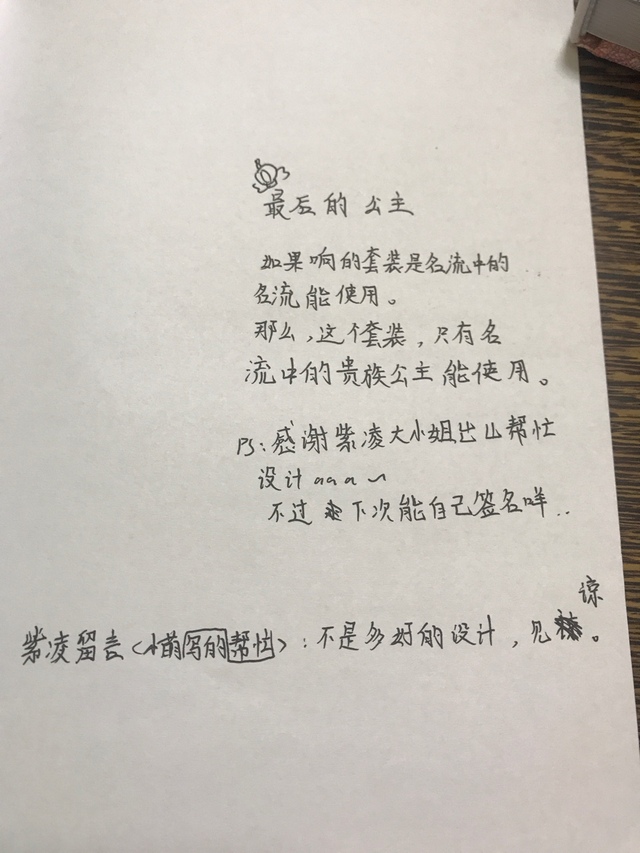 最后的公主
如果响的套装是名流中的
名流能使用。
那么,这个套装,只有名
流中的贵族公主能使用。
PS:感谢紫凌大小姐出山帮忙
设计aaa~
不过下次能自己签名咩..
紫凌留言(小萌写的帮忙):不是多好的设计,见谅。